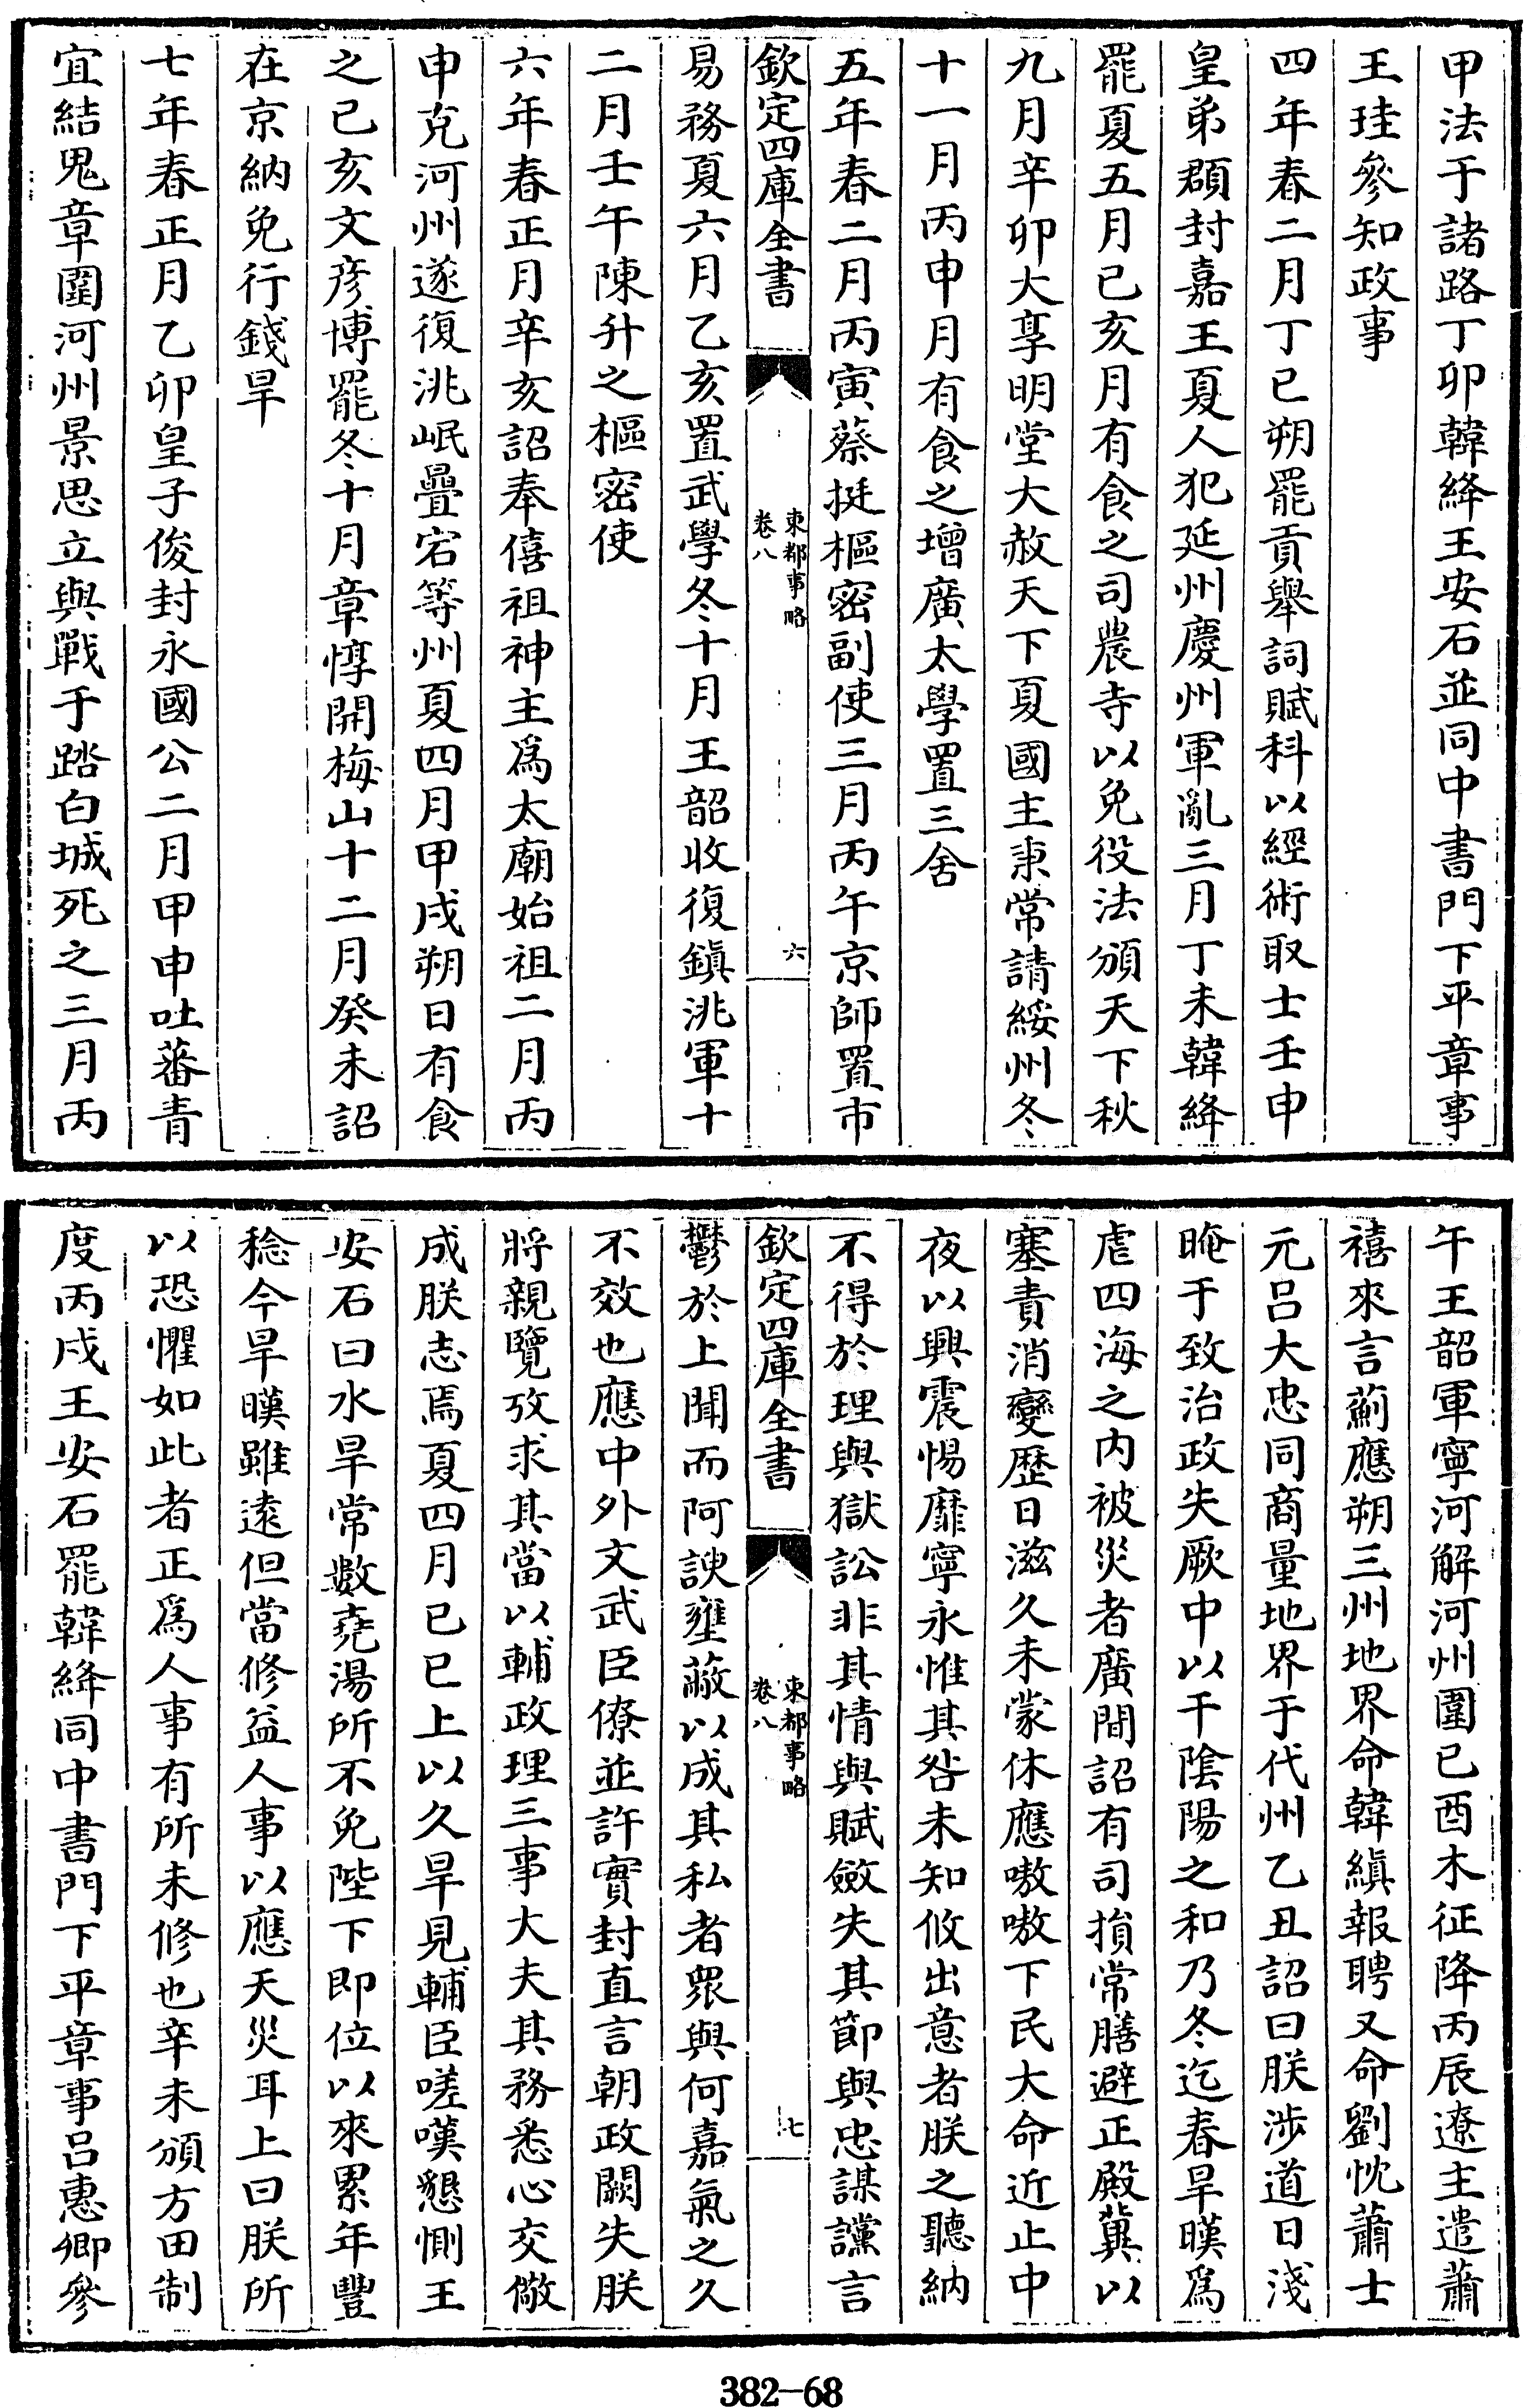 甲法于諸路丁卯韓絳王安石並同中書門下平章事
王珪參知政事
四年春二月丁巳朔罷貢舉詞賦科以經術取士壬申
皇弟頵封嘉王夏人犯延州慶州軍亂三月丁未韓絳
罷夏五月己亥月有食之司農寺以免役法頒天下秋
九月辛卯大享明堂大赦天下夏國主秉常請綏州冬
十一月丙申月有食之增廣太學置三舍
五年春二月丙寅蔡挺樞密副使三月丙午京師置市
欽定四庫全書
東都事略
卷八
六
易務夏六月乙亥置武學冬十月王韶收復鎮洮軍十
二月壬午陳升之樞密使
六年春正月辛亥詔奉僖祖神主為太廟始祖二月丙
申克河州遂復洮岷疊宕等州夏四月甲戌朔日有食
之己亥文彦博罷冬十月章惇開梅山十二月癸未詔
在京納免行錢旱
七年春正月乙卯皇子俊封永國公二月甲申吐蕃青
宜結鬼章圍河州景思立與戰于踏白城死之三月丙
午王韶軍寧河解河州圍己酉木征降丙辰遼主遣蕭
禧來言薊應朔三州地界命韓縝報聘又命劉忱蕭士
元吕大忠同商量地界于代州乙丑詔曰朕涉道日淺
晻于致治政失厥中以干陰陽之和乃冬迄春旱暵為
虐四海之内被災者廣間詔有司損常膳避正殿冀以
塞責消變歷日滋久未蒙休應嗷嗷下民大命近止中
夜以興震惕靡寧永惟其咎未知攸出意者朕之聽納
不得於理與獄訟非其情與賦斂失其節與忠謀讜言
欽定四庫全書
東都事略
卷八
七
鬱於上聞而阿諛壅蔽以成其私者衆與何嘉氣之久
不效也應中外文武臣僚並許實封直言朝政闕失朕
將親覽攷求其當以輔政理三事大夫其務悉心交儆
成朕志焉夏四月己巳上以久旱見輔臣嗟嘆懇惻王
安石曰水旱常數堯湯所不免陛下即位以來累年豐
稔今旱暵雖逺但當修益人事以應天災耳上曰朕所
以恐懼如此者正為人事有所未修也辛未頒方田制
度丙戌王安石罷韓絳同中書門下平章事吕惠卿參
382-68